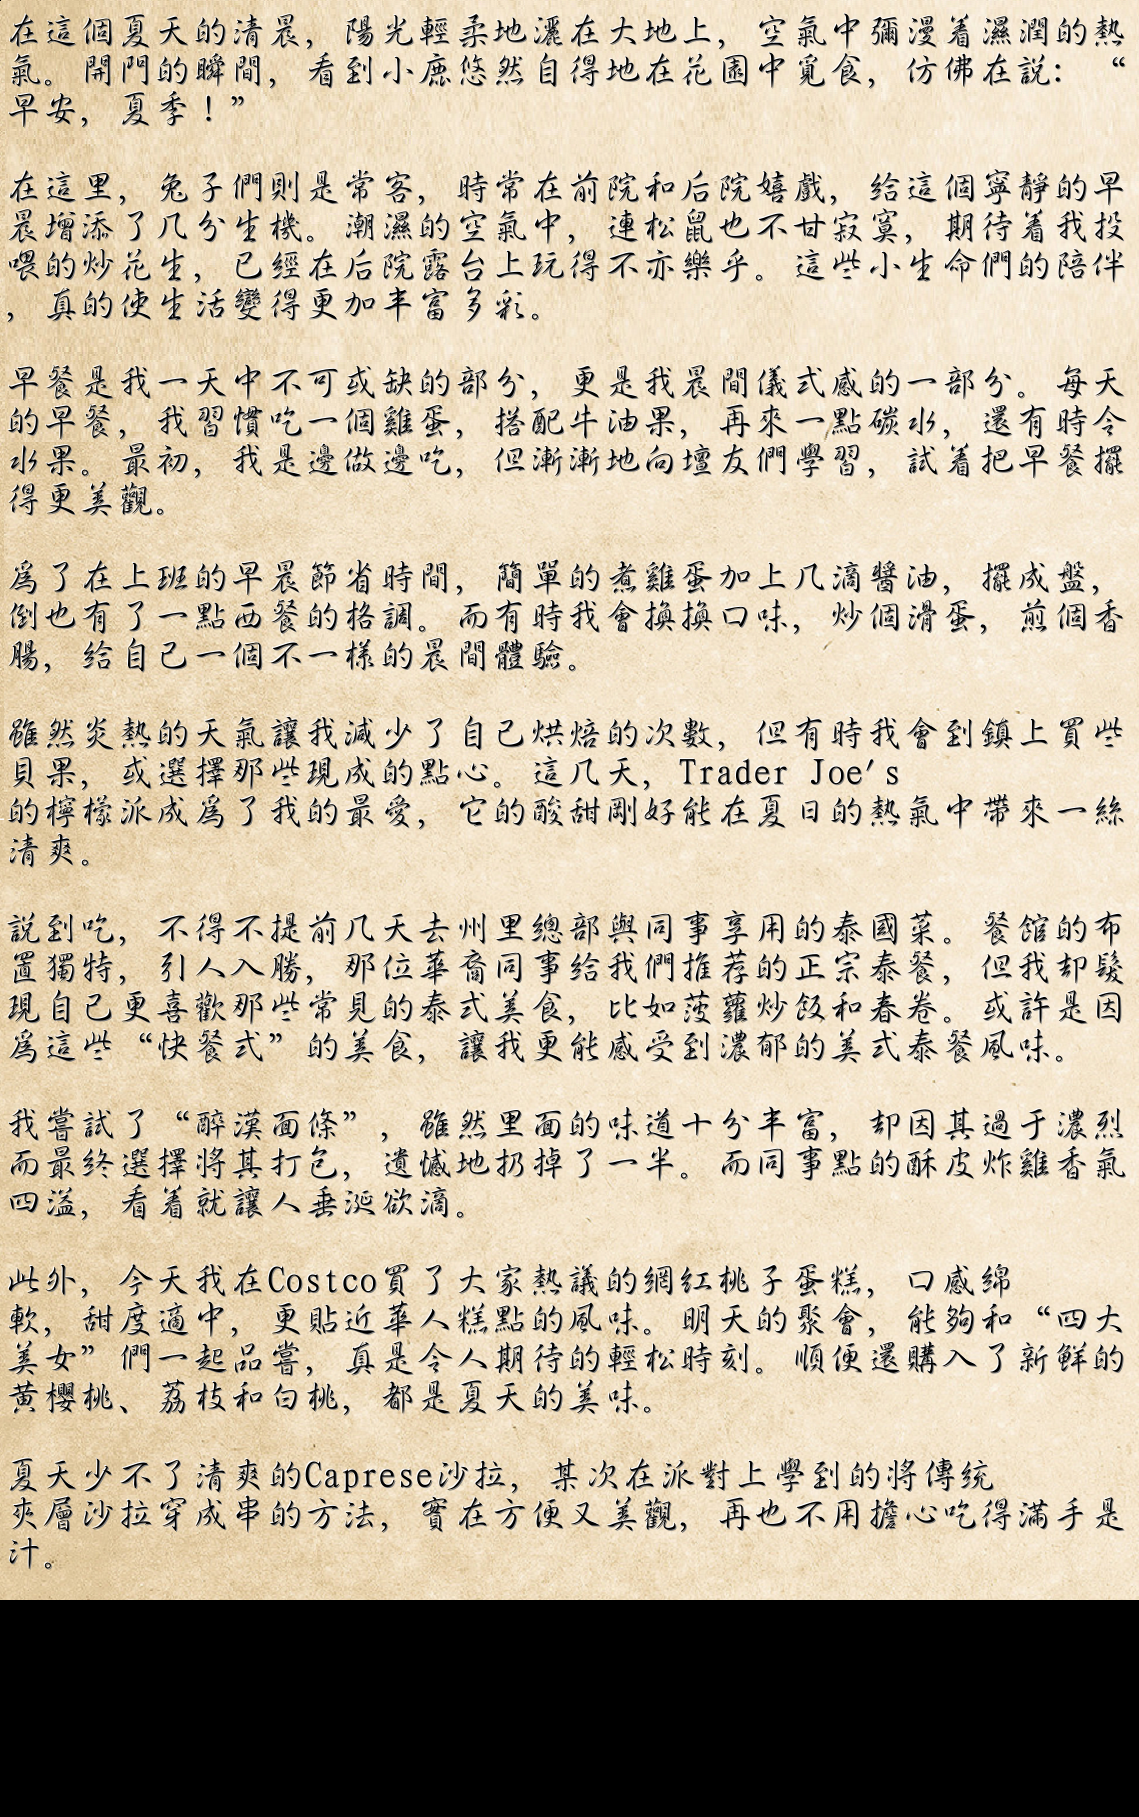 在這個夏天的清晨，陽光輕柔地灑在大地上，空氣中彌漫着濕潤的熱
氣。開門的瞬間，看到小鹿悠然自得地在花園中覓食，仿佛在説：“
早安，夏季！”
在這里，兔子們則是常客，時常在前院和后院嬉戲，给這個寧靜的早
晨增添了几分生機。潮濕的空氣中，連松鼠也不甘寂寞，期待着我投
喂的炒花生，已經在后院露台上玩得不亦樂乎。這些小生命們的陪伴
，真的使生活變得更加丰富多彩。
早餐是我一天中不可或缺的部分，更是我晨間儀式感的一部分。每天
的早餐，我習慣吃一個雞蛋，搭配牛油果，再來一點碳水，還有時令
水果。最初，我是邊做邊吃，但漸漸地向壇友們學習，試着把早餐擺
得更美觀。
爲了在上班的早晨節省時間，簡單的煮雞蛋加上几滴醬油，擺成盤，
倒也有了一點西餐的格調。而有時我會換換口味，炒個滑蛋，煎個香
腸，给自己一個不一樣的晨間體驗。
雖然炎熱的天氣讓我減少了自己烘焙的次數，但有時我會到鎮上買些
貝果，或選擇那些現成的點心。這几天，Trader Joe's
的檸檬派成爲了我的最愛，它的酸甜剛好能在夏日的熱氣中帶來一絲
清爽。
説到吃，不得不提前几天去州里總部與同事享用的泰國菜。餐館的布
置獨特，引人入勝，那位華裔同事给我們推荐的正宗泰餐，但我却髮
現自己更喜歡那些常見的泰式美食，比如菠蘿炒飯和春卷。或許是因
爲這些“快餐式”的美食，讓我更能感受到濃郁的美式泰餐風味。
我嘗試了“醉漢面條”，雖然里面的味道十分丰富，却因其過于濃烈
而最终選擇將其打包，遺憾地扔掉了一半。而同事點的酥皮炸雞香氣
四溢，看着就讓人垂涎欲滴。
此外，今天我在Costco買了大家熱議的網紅桃子蛋糕，口感綿
軟，甜度適中，更貼近華人糕點的風味。明天的聚會，能夠和“四大
美女”們一起品嘗，真是令人期待的輕松時刻。順便還購入了新鮮的
黄櫻桃、荔枝和白桃，都是夏天的美味。
夏天少不了清爽的Caprese沙拉，某次在派對上學到的將傳统
夾層沙拉穿成串的方法，實在方便又美觀，再也不用擔心吃得滿手是
汁。